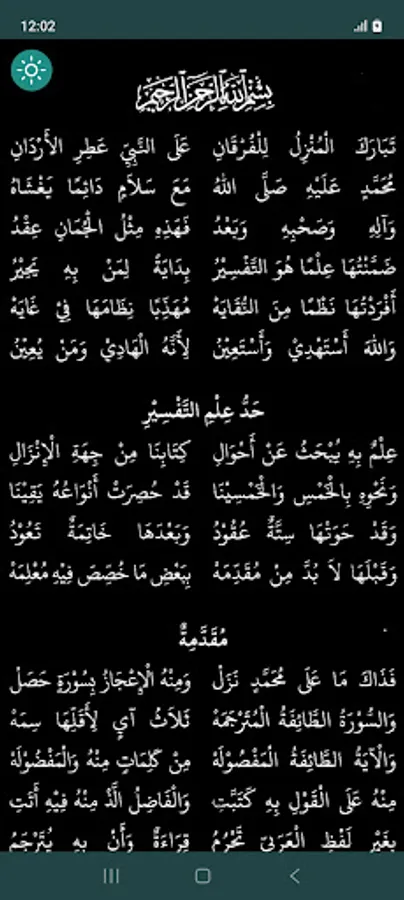 12:02
بِسْمِ ٱللَّهِ ٱلرَّحْمَٰنِ ٱلرَّحِيمِ
تَبَارَكَ الْمُنْزِلُ لِلْفُرْقَانِ عَلَى النَّبِيِّ عَطِرِ الأَرْدَانِ
مُحَمَّدٍ عَلَيْهِ صَلَّى اللهُ مَعَ سَلاَمٍ دَائِمًا يَغْشَاهُ
وَآلِهِ وَصَحْبِهِ وَبَعْدُ فَهَذِهِ مِثْلُ الْجُمَانِ عِقْدُ
ضَمَّنْتُهَا عِلْمًا هُوَ التَّفْسِيْرُ بِدَايَةً لِمَنْ بِهِ يَحِيْرُ
أَفْرَدْتُهَا نَظْمًا مِنَ النُّقَايَهْ مُهَذِّبًا نِظَامَهَا فِيْ غَايَهْ
وَاللهَ أَسْتَهْدِيْ وَأَسْتَعِيْنُ لِأَنَّهُ الْهَادِيْ وَمَنْ يُعِيْنُ
حَدُّ عِلْمِ التَّفْسِيْرِ
عِلْمٌ بِهِ يُبْحَثُ عَنْ أَحْوَالِ كِتَابِنَا مِنْ جِهَةِ الْإِنْزَالِ
وَنَحْوِهِ بِالْخَمْسِ وَالْخَمْسِيْنَا قَدْ حُصِرَتْ أَنْوَاعُهُ يَقِيْنَا
وَقَدْ حَوَتْهَا سِتَّةٌ عُقُوْدُ وَبَعْدَهَا خَاتِمَةٌ تَعُوْدُ
وَقَبْلَهَا لاَ بُدَّ مِنْ مُقَدِّمَهْ بِبَعْضِ مَا خُصِّصَ فِيْهِ مُعْلِمَهْ
مُقَدِّمَةٌ
فَذَاكَ مَا عَلَى مُحَمَّدٍ نَزَلْ وَمِنْهُ الْإِعْجَازُ بِسُوْرَةٍ حَصَلْ
وَالسُّوْرَةُ الطَّائِفَةُ الْمُتَرْجَمَهْ ثَلاَثُ آيٍ لِأَقَلِّهَا سِمَهْ
وَالْآيَةُ الطَّائِفَةُ الْمَفْصُوْلَهْ مِنْ كَلِمَاتٍ مِنْهُ وَالْمَفْضُوْلَهْ
مِنْهُ عَلَى الْقَوْلِ بِهِ كَتَبَّتِ وَالْفَاضِلُ الَّذْ مِنْهُ فِيْهِ أَتَتِ
بِغَيْرِ لَفْظِ الْعَرَبِيِّ تَحْرُمُ قِرَاءَةٌ وَأَنْ بِهِ يُتَرْجَمُ